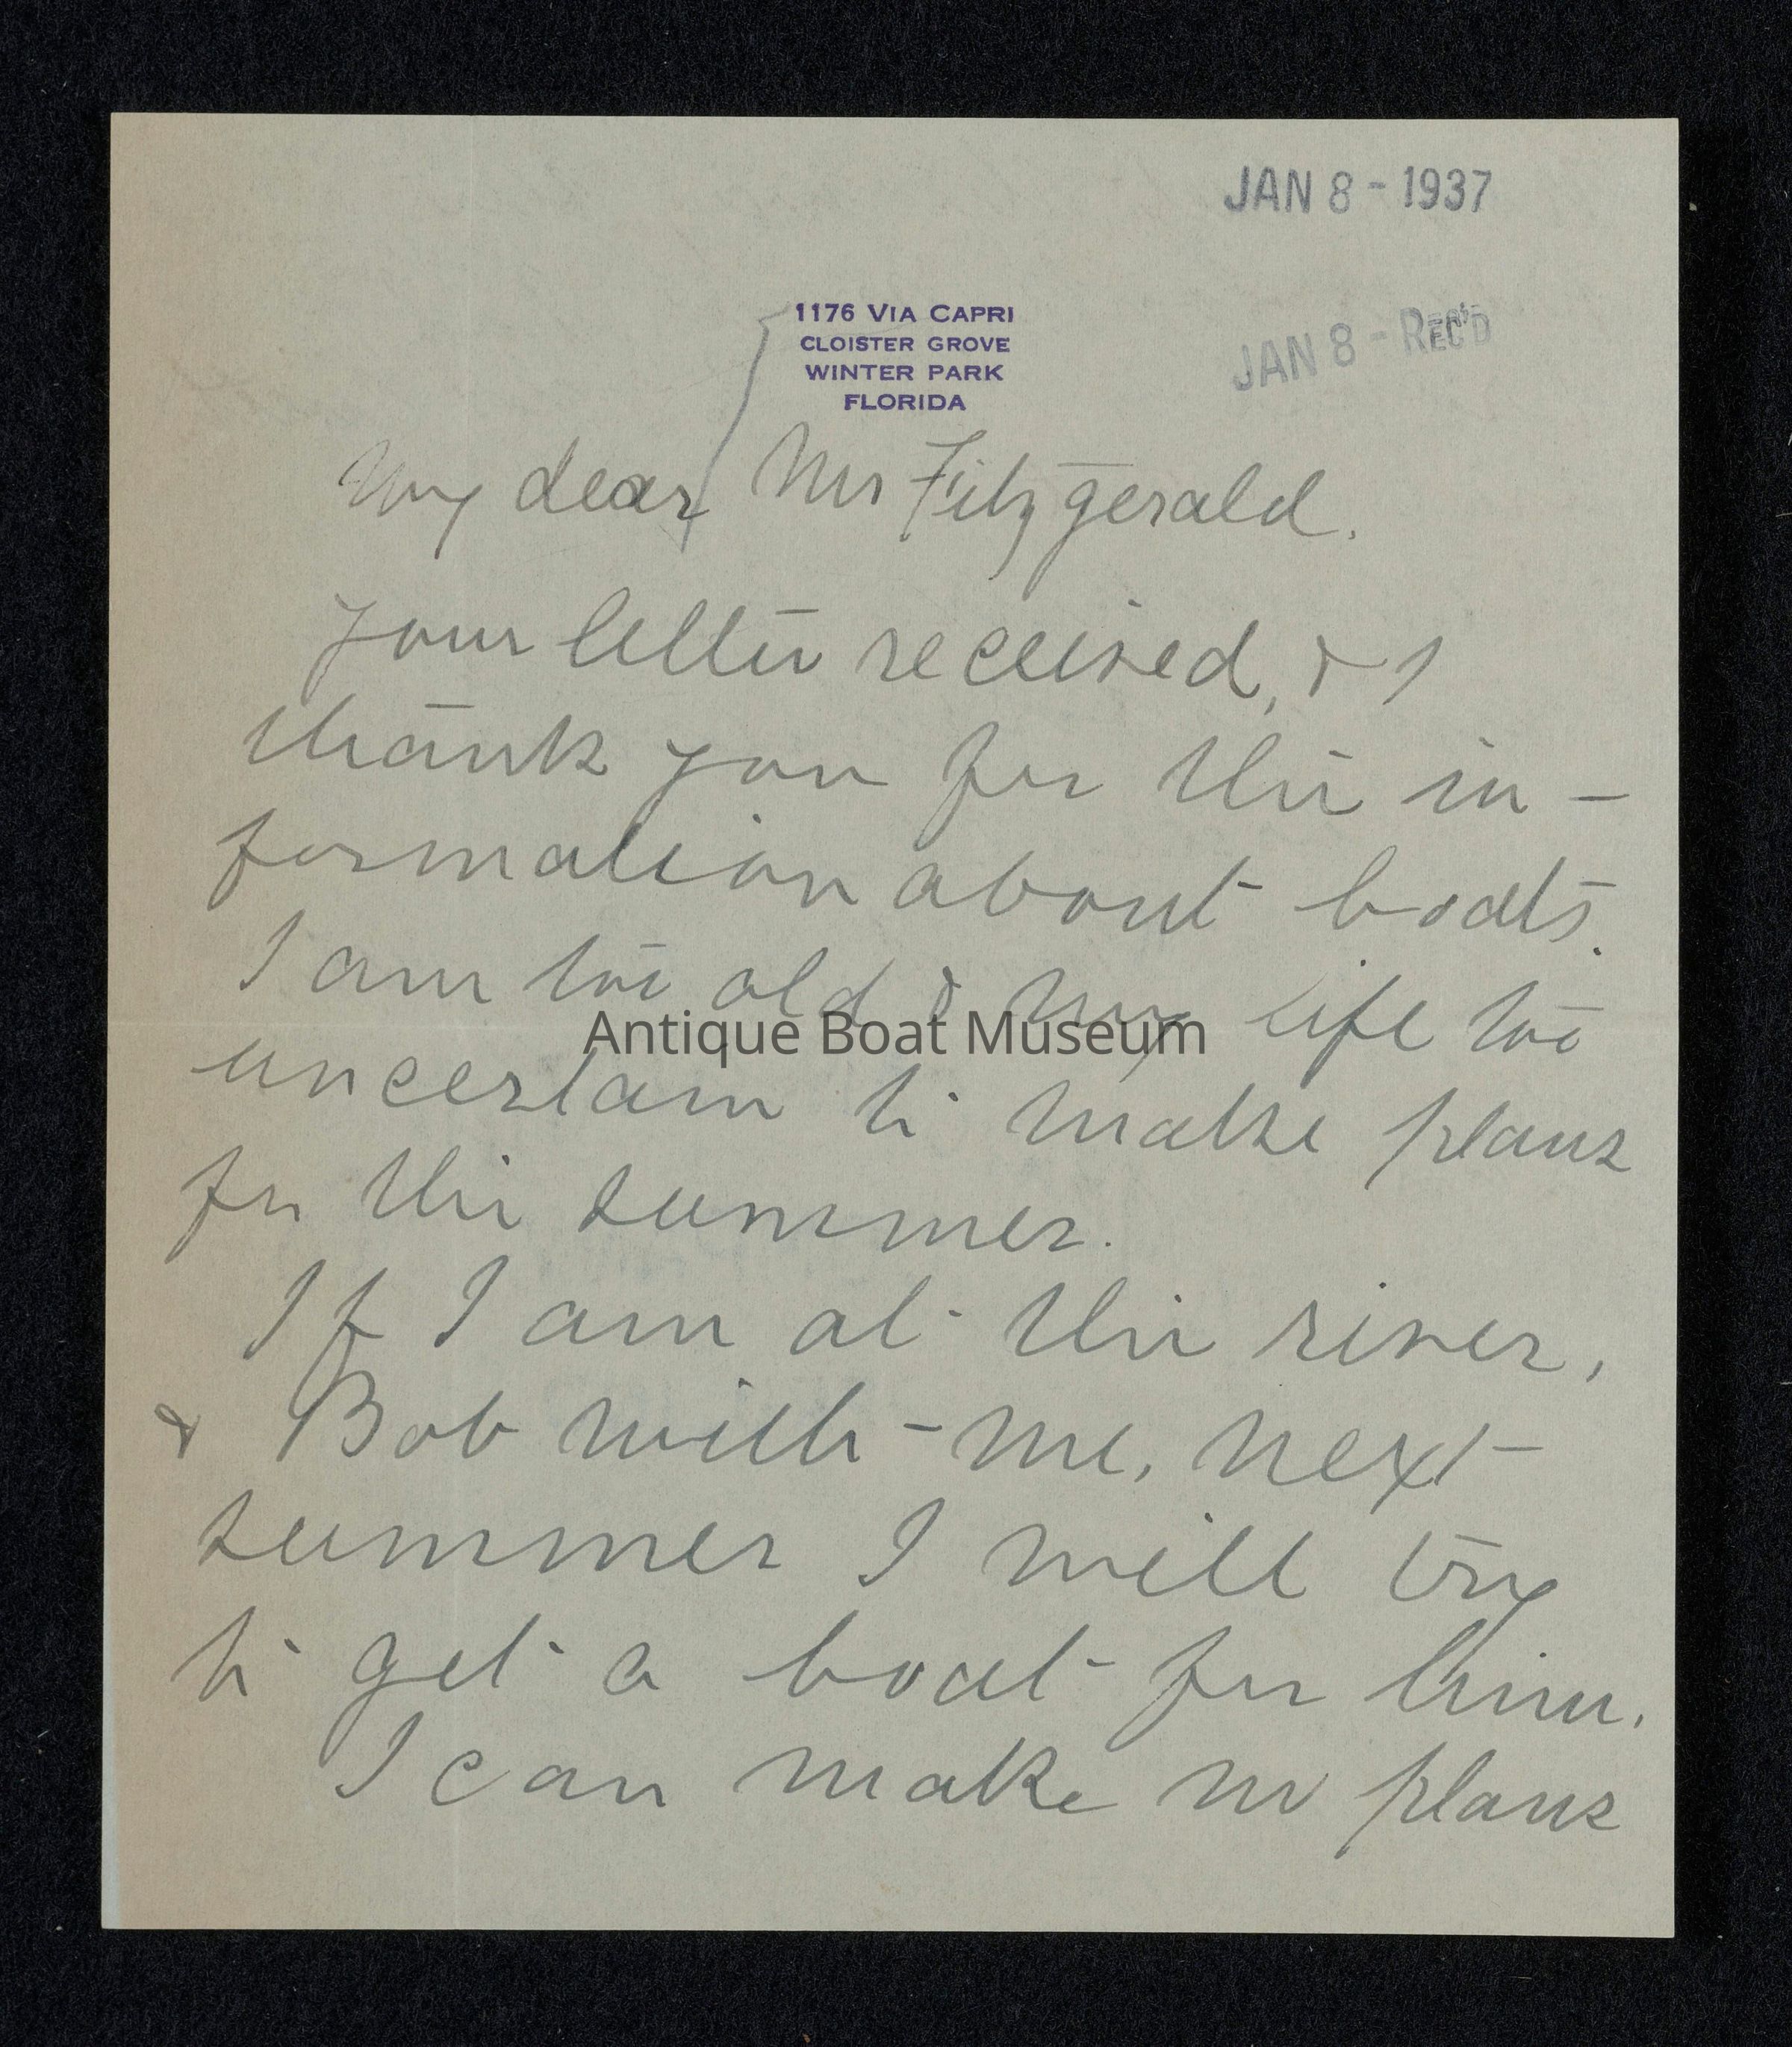 JAN 8 - 1937
JAN 8 - REC'D
1176 VIA CAPRI
CLOISTER GROVE
WINTER PARK
FLORIDA
My dear Mr Fitzgerald.
Your letter received, & I
thank you for the in-
formation about boats.
I am too old & my life too
Antique Boat Museum
uncertain to make plans
for the summer.
If I am at the river,
& Bob with me, next
summer I will try
to get a boat for him.
I can make no plans